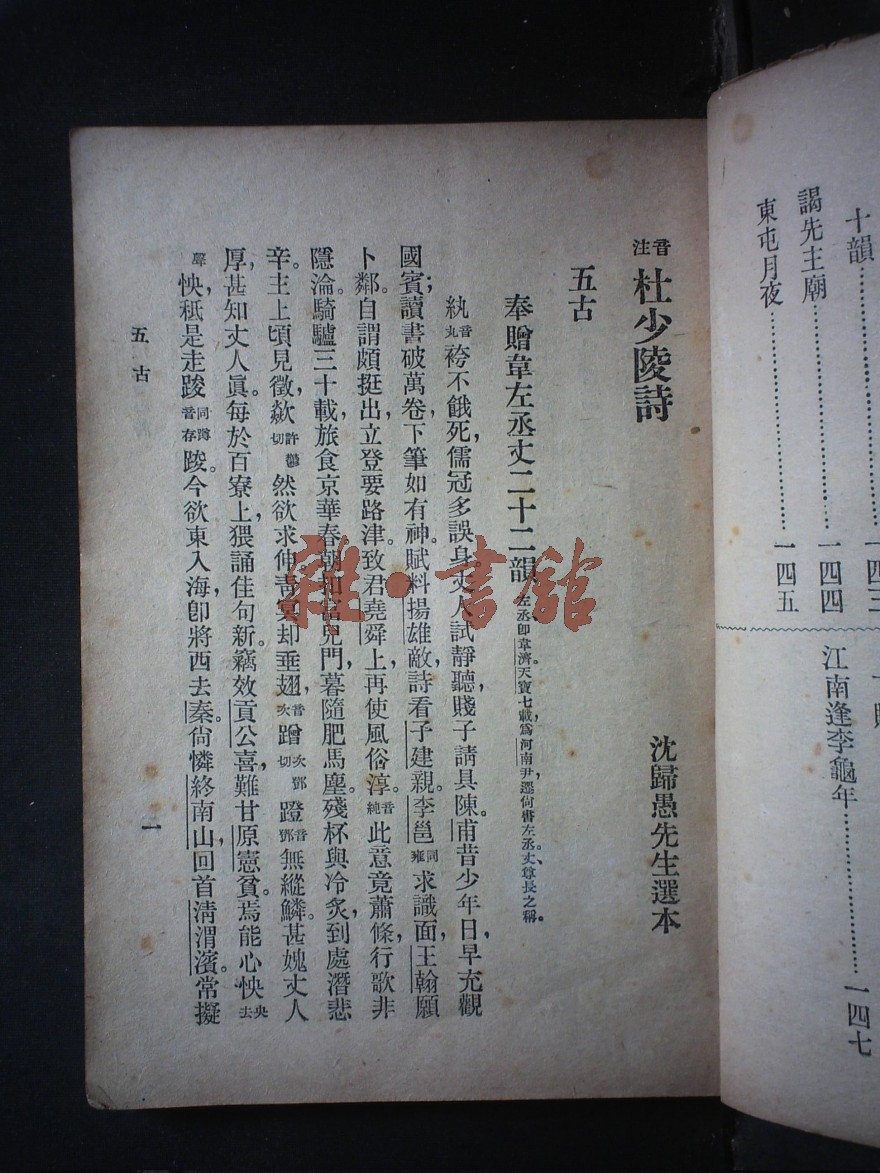 十韻……一四三
謁先主廟……一四四
東屯月夜……一四五
江南逢李龜年……一四七
音注 杜少陵詩
沈歸愚先生選本
五古
奉贈韋左丞丈二十二韻 左丞卽韋濟。天寶七載,爲河南尹,遷尙書左丞。丈,尊長之稱。
紈音丸袴不餓死,儒冠多誤身。丈人試靜聽,賤子請具陳。甫昔少年日,早充觀
國賓;讀書破萬卷,下筆如有神。賦料揚雄敵,詩看子建親。李邕同雍求識面,王翰願
卜鄰。自謂頗挺出,立登要路津。致君堯舜上,再使風俗淳。音純此意竟蕭條,行歌非
隱淪。騎驢三十載,旅食京華春。朝扣富兒門,暮隨肥馬塵。殘杯與冷炙,到處潛悲
辛。主上頃見徵,歘許鬱切然欲求伸。靑冥却垂翅,音次蹭次鄧切蹬音鄧無縱鱗。甚媿丈人
厚,甚知丈人眞。每於百寮上,猥誦佳句新。竊效貢公喜,難甘原憲貧。焉能心怏央去
聲怏,秪是走踆同蹲音存踆。今欲東入海,卽將西去秦。尙憐終南山,回首淸渭濱。常擬
五古
一
雜·書館